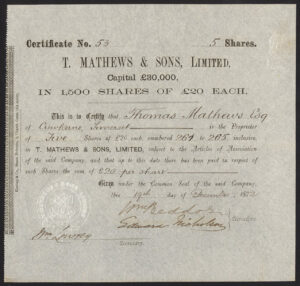 Certificate No. 53 5 Shares.
T. MATHEWS & SONS, LIMITED,
Capital £30,000,
IN 1,500 SHARES OF £20 EACH,
This is to Certify that Thomas Mathews Esq
of Somerset is the Proprietor
of Five Share of £20 each numbered 261 to 265 inclusive,
in T. MATHEWS & SONS, LIMITED, subject to the Articles of Association
of the said Company, and that up to this date there has been paid in respect of
such Shares the sum of £20 per share
Given under the Common Seal of the said Company,
this 19th day of December
Edward Nicholson
Directors
Wm Lowrey
Secretary.